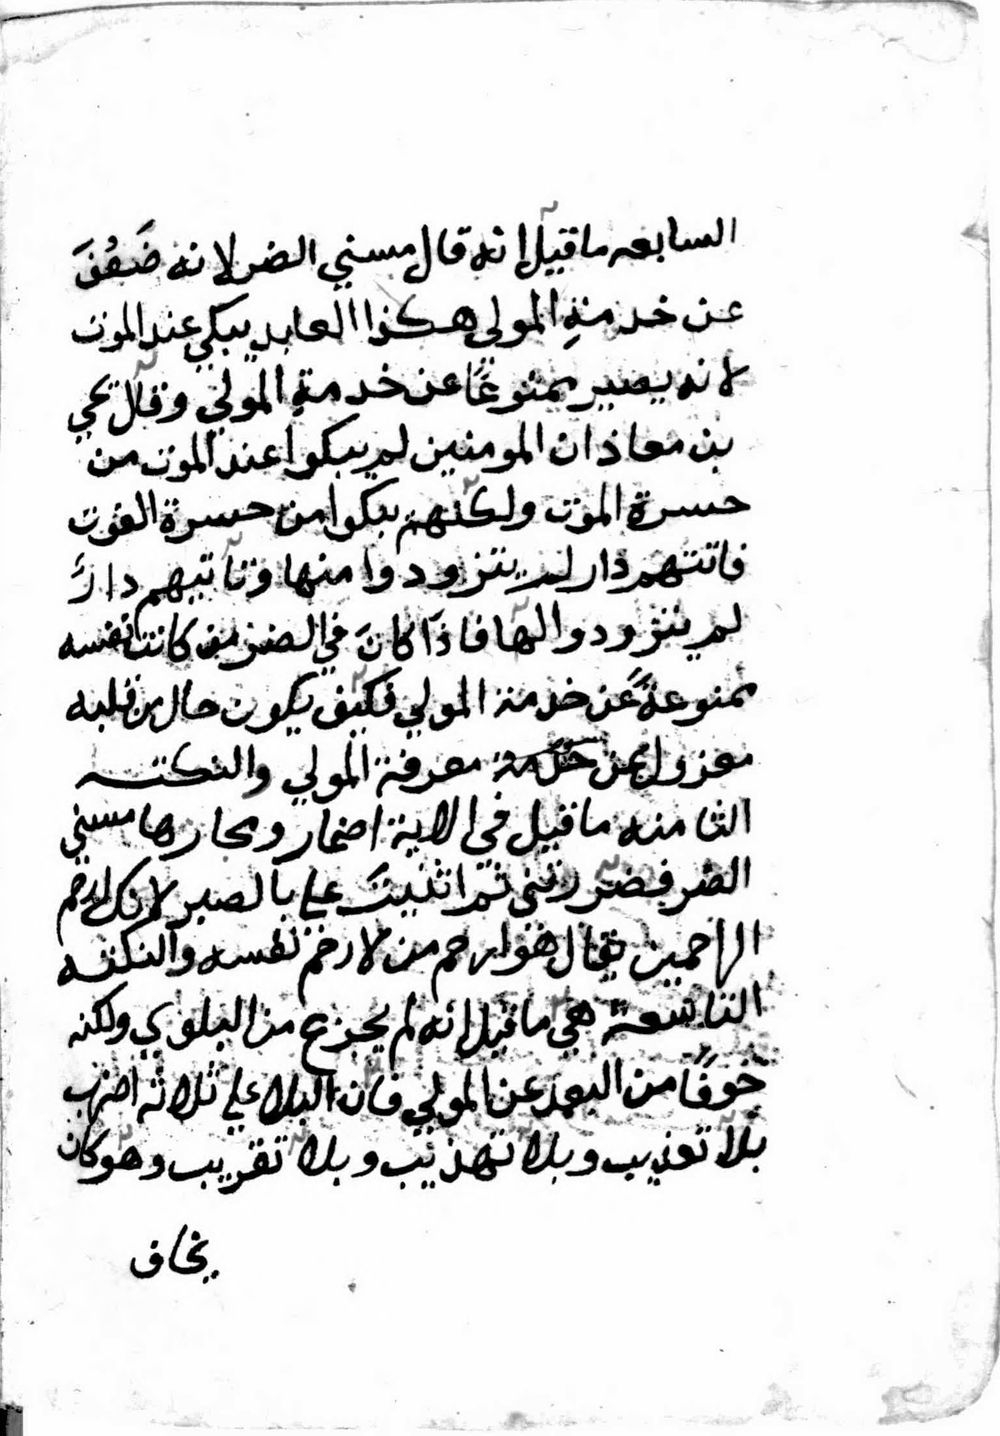 السابعه ما قيل انه قال مسني الضر لانه ضَعُفَ
عن خدمةِ المولي هكذا العابد يبكي عند الموت
لانه يصير ممنوعًا عن خدمةِ المولي وقال يحي
بن معاذ ان المومنين لم يبكوا عند الموت من
حسرة الموت ولكنهم يبكوا من حسرة الفوت
فاتتهم دار لم يتزودوا منها وتاتيهم دارً
لم يتزودوا لها فاذَا كانَ في الضر من كانت نفسه
ممنوعةً عن خدمة المولي فكيف يكون حال من قلبه
معزول عن خدمة معرفة المولي والنكتــه
الثامنه ما قيل في الاية اضمار ومجازها مسني
الضر فضررتني ثم اثنيتَ علي بالصبر لانك ارحم
الراحمين يقال هو ارحم من لا رحم نفسه والنكته
التاسعة هي ما قيل انه لم يجزع من البلوي ولكنه
خوفًا من البعد عن المولي فان البلا علي ثلاثه اضرب
بلا تعذيب وبلا تهذيب وبلا تقريب وهو كان
يخاف